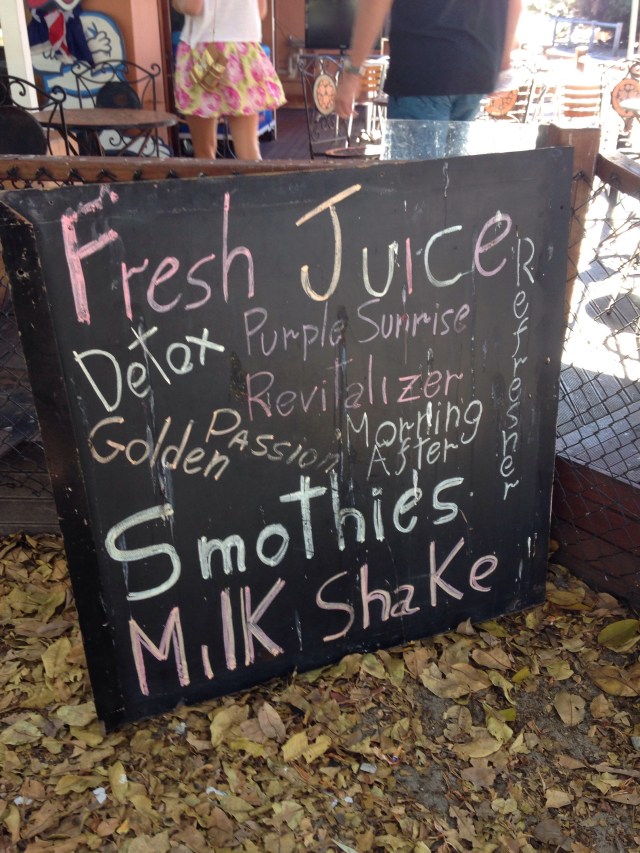 Fresh Juice
Refresher
Detox
Purple Sunrise
Revitalizer
Golden Passion
Morning
After
Smothies.
Milk Shake